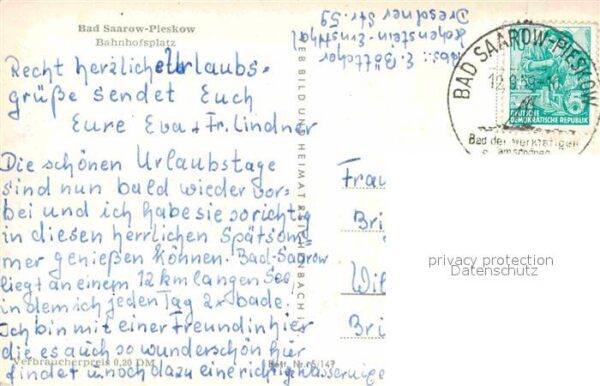 Bad Saarow-Pieskow
Bahnhofsplatz
Recht herzliche Urlaubs-
grüße sendet Euch
Eure Eva + Fr. Lindner
Die schönen Urlaubstage
sind nun bald wieder vor-
bei und ich habe sie so richtig
in diesen herrlichen Spätsom-
mer genießen können. Bad-Saarow
liegt an einem 12 km langen See
in dem ich jeden Tag 2x bade.
Ich bin mit einer Freundin hier
die es auch so wunderschön hier
findet u. noch dazu eine richtige Wasser
Verbraucherpreis 0,20 DM
Bestr. Nr. r5/147
VEB BILD UND HEIMAT REICHENBACH I.
Abs.: E. Böttcher
Hohenstein-Ernstthal
Dresdner Str. 59
BAD SAAROW-PIESKOW
12.9.59
Bad der Werktätigen
am schönen
5
DEUTSCHE
DEMOKRATISCHE REPUBLIK
Frau
Bri
Wil
Bri
privacy protection
Datenschutz